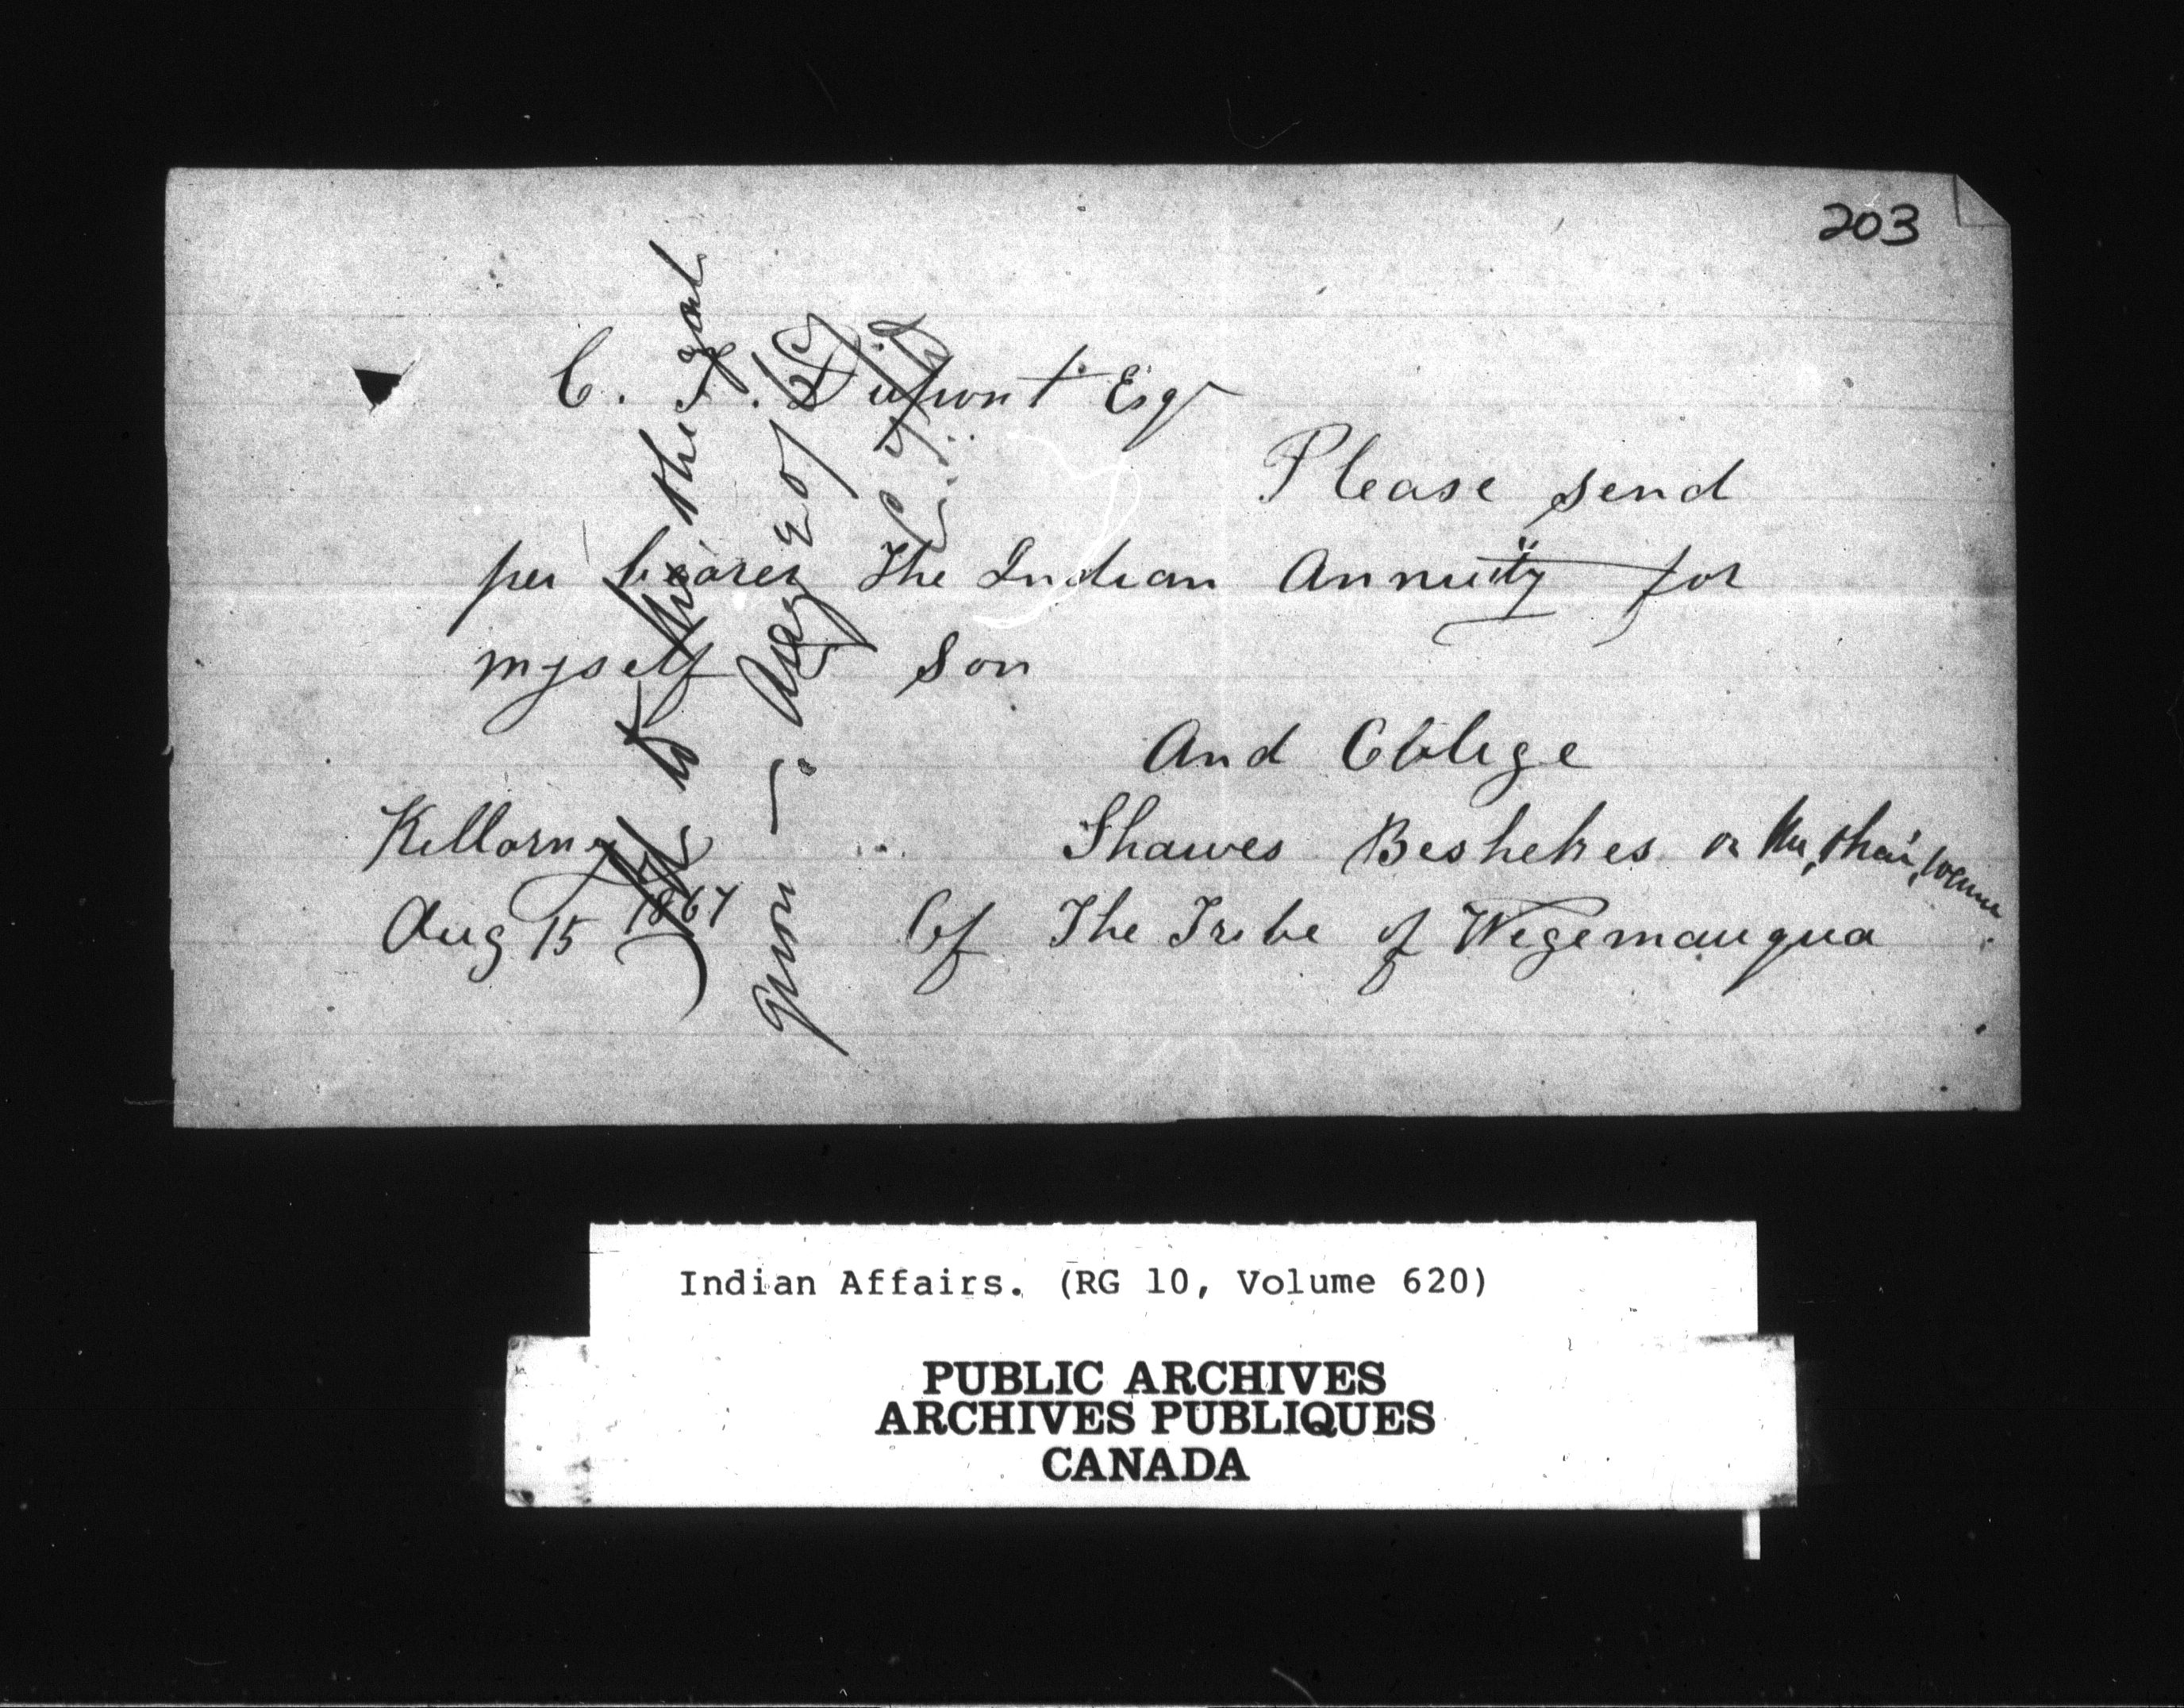 203
C. T. Dupont Esqr
Please send
per bearer The Indian Annuity for
myself & son
And Oblige
Killarney
Shawes Beshekes or
Aug 15 1867
Of The Tribe of Wegemauqua
the goat
Indian Affairs. (RG 10, Volume 620)
PUBLIC ARCHIVES
ARCHIVES PUBLIQUES
CANADA